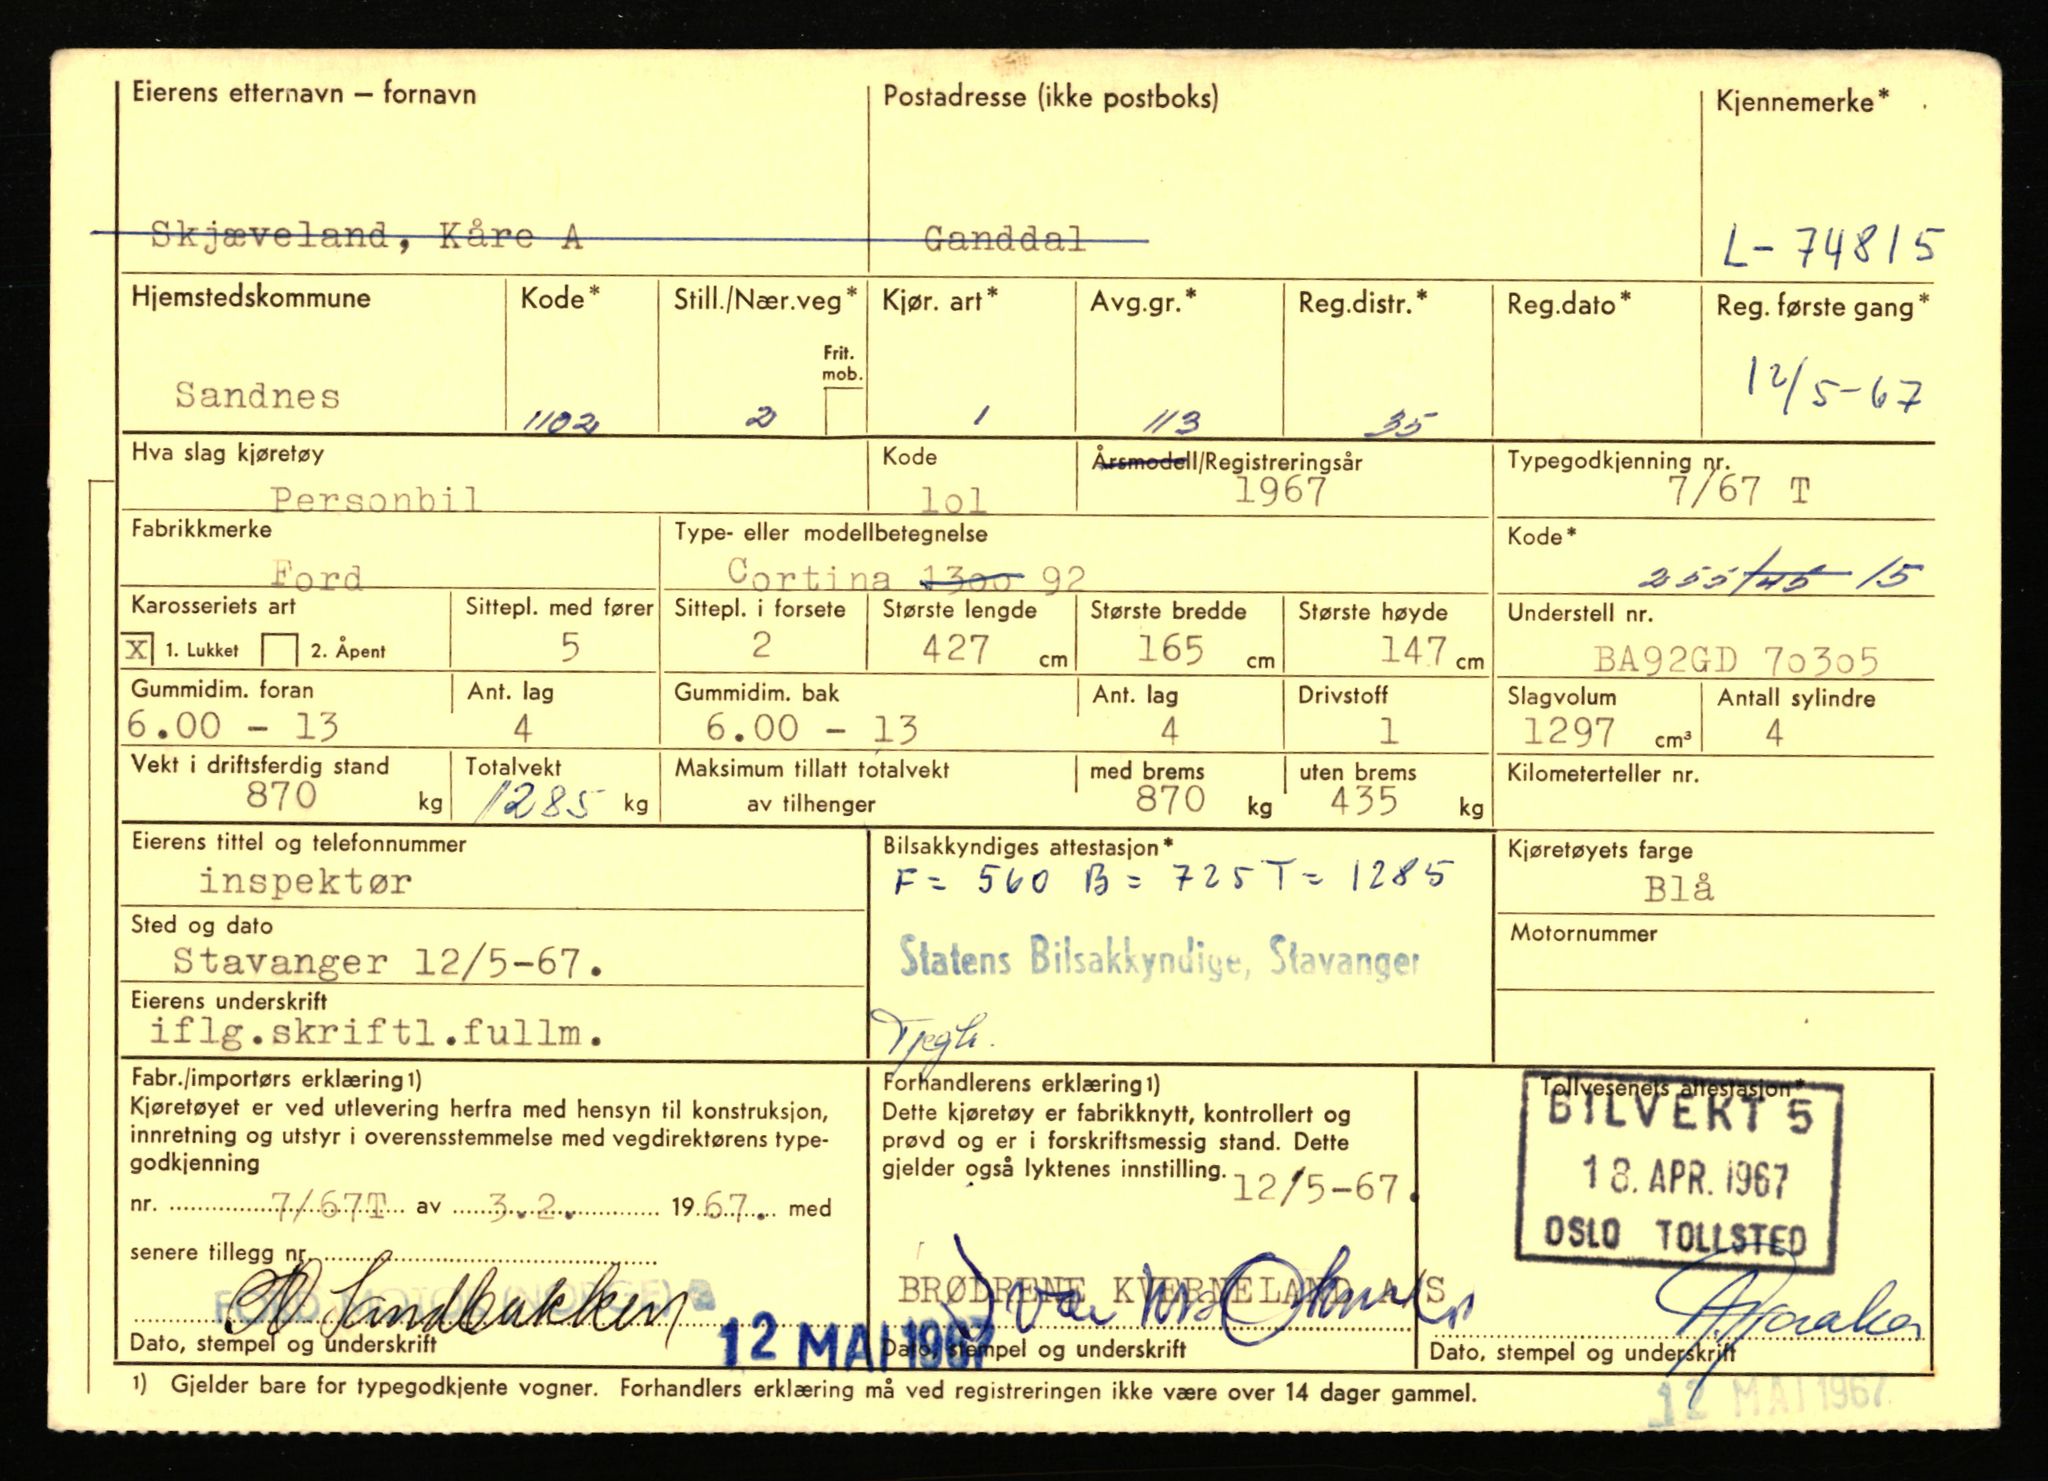 Eierens etternavn – fornavn Postadresse (ikke postboks) Kjennemerke*
Skjæveland, Kåre A Ganddal L-74815
Hjemstedskommune Kode* Still./Nær.veg* Kjør. art* Avg.gr.* Reg.distr.* Reg.dato* Reg. første gang*
Frit. mob.
Sandnes 1102 2 1 113 35 12/5-67
Hva slag kjøretøy Kode Årsmodell/Registreringsår Typegodkjenning nr.
Personbil lol 1967 7/67 T
Fabrikkmerke Type- eller modellbetegnelse Kode*
Ford Cortina 13oo 92 255/45 15
Karosseriets art Sittepl. med fører Sittepl. i forsete Største lengde Største bredde Største høyde Understell nr.
X 1. Lukket 2. Åpent 5 2 427 cm 165 cm 147 cm BA92GD 7o3o5
Gummidim. foran Ant. lag Gummidim. bak Ant. lag Drivstoff Slagvolum Antall sylindre
6.00 - 13 4 6.00 - 13 4 1 1297 cm³ 4
Vekt i driftsferdig stand Totalvekt Maksimum tillatt totalvekt med brems uten brems Kilometerteller nr.
870 kg 1285 kg av tilhenger 870 kg 435 kg
Eierens tittel og telefonnummer Bilsakkyndiges attestasjon* Kjøretøyets farge
inspektør F = 560 B = 725 T = 1285 Blå
Sted og dato Motornummer
Stavanger 12/5-67. Statens Bilsakkyndige, Stavanger
Eierens underskrift
iflg.skriftl.fullm.
Fabr./importørs erklæring1) Forhandlerens erklæring1) Tollvesenets attestasjon*
Kjøretøyet er ved utlevering herfra med hensyn til konstruksjon,
innretning og utstyr i overensstemmelse med vegdirektørens type-
godkjenning
nr. 7/67T av 3.2. 1967. med
senere tillegg nr.
Dette kjøretøy er fabrikknytt, kontrollert og
prøvd og er i forskriftsmessig stand. Dette
gjelder også lyktenes innstilling. 12/5-67.
BILVEKT 5
18. APR. 1967
OSLO TOLLSTED
Sandbakken
BRØDRENE KVERNELAND A/S
12 MAI 1967
Dato, stempel og underskrift Dato, stempel og underskrift Dato, stempel og underskrift
1) Gjelder bare for typegodkjente vogner. Forhandlers erklæring må ved registreringen ikke være over 14 dager gammel.
12 MAI 1967